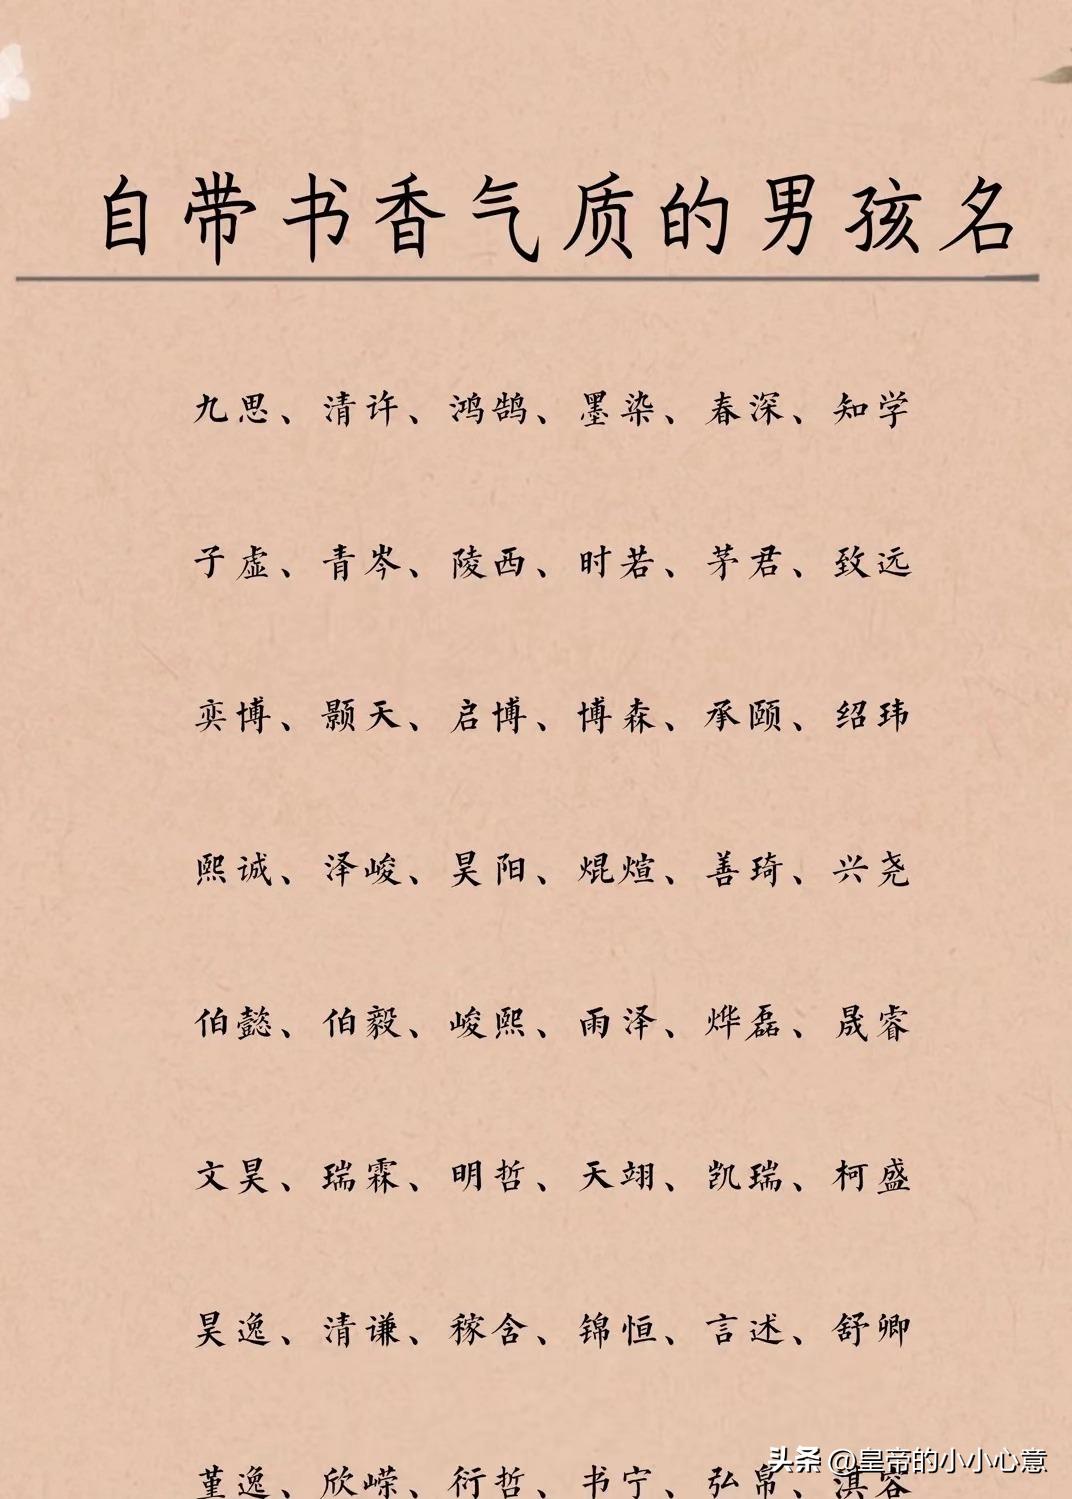 自带书香气质的男孩名
九思、清许、鸿鹄、墨染、春深、知学
子虚、青岑、陵西、时若、茅君、致远
奕博、颢天、启博、博森、承颐、绍玮
熙诚、泽峻、昊阳、焜煊、善琦、兴尧
伯懿、伯毅、峻熙、雨泽、烨磊、晟睿
文昊、瑞霖、明哲、天翊、凯瑞、柯盛
昊逸、清谦、稼含、锦恒、言述、舒卿
堇逸、欣嵘、衍哲、书宁、弘帛、淇容
头条 @皇帝的小小心意